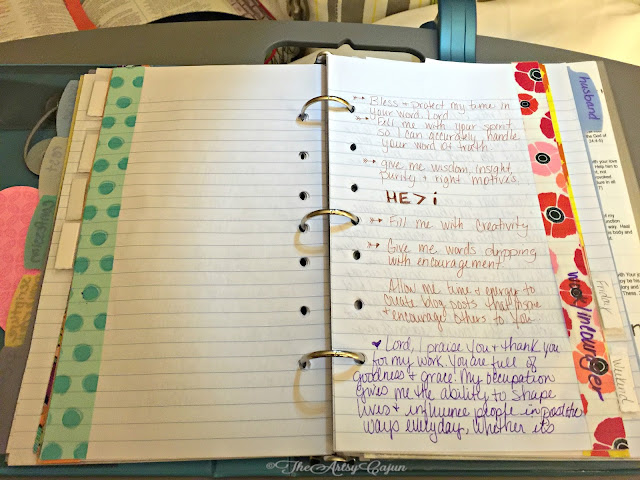 ** Bless + protect my time in
your word, Lord
** Fill me with your spirit
so I can accurately handle
your word of truth
** give me wisdom, insight,
purity + right motives
HE > i
** Fill me with creativity
** Give me words dripping
with encouragement
Allow me time + energy to
create blog posts that inspire
+ encourage others to You
♥ Lord, I praise You + thank you
for my work. You are full of
goodness + grace! My occupation
gives me the ability to shape
lives + influence people in positive
ways everyday, whether it's
husband
work
limburger
Friday
Weekend
©TheArtsyCajun